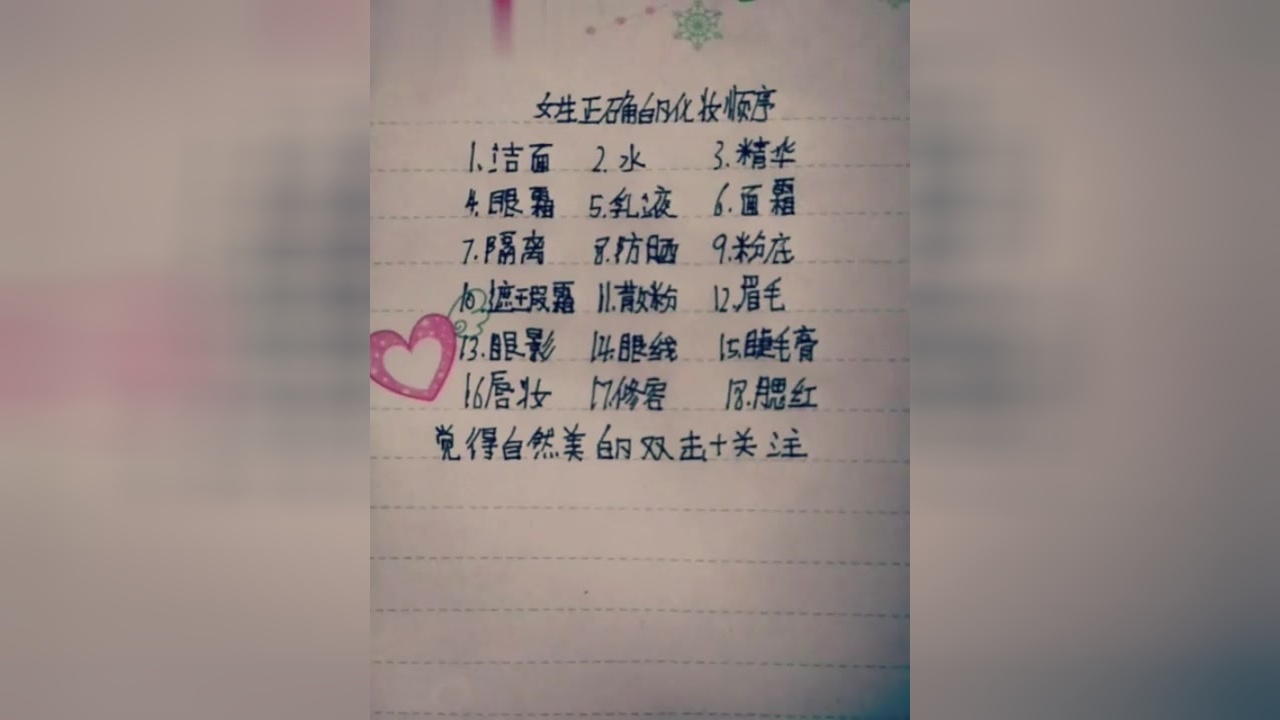 女生正确的化妆顺序
1.洁面 2.水 3.精华
4.眼霜 5.乳液 6.面霜
7.隔离 8.防晒 9.粉底
10.遮瑕霜 11.散粉 12.眉毛
13.眼影 14.眼线 15.睫毛膏
16唇妆 17.修容 18.腮红
觉得自然美的双击+关注